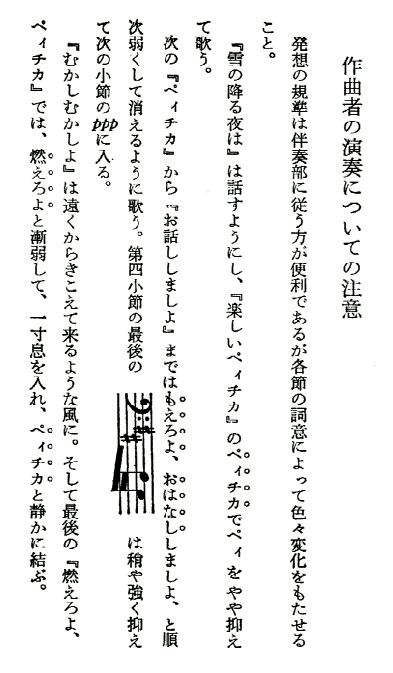 作曲者の演奏についての注意
発想の規準は伴奏部に従う方が便利であるが各節の詞意によって色々変化をもたせる
こと。
『雪の降る夜は』は話すようにし、『楽しいペィチカ』のペィチカでペィをやや抑え
て歌う。
次の『ペィチカ』から『お話ししましよ』まではもえろよ、おはなししましよ、と順
次弱くして消えるように歌う。第四小節の最後の は稍や強く抑え
て次の小節のpppに入る。
『むかしむかしよ』は遠くからきこえて来るような風に。そして最後の『燃えろよ、
ペィチカ』では、燃えろよと漸弱して、一寸息を入れ、ペィチカと静かに結ぶ。